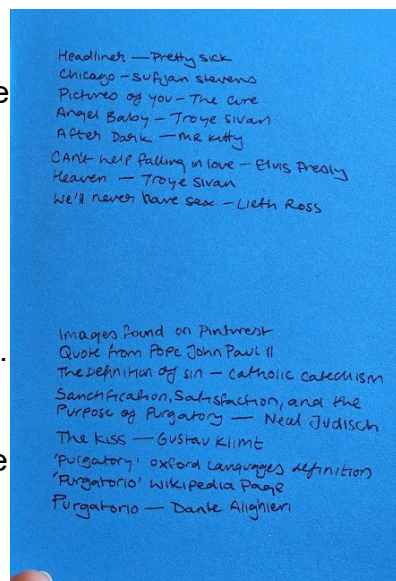 Headliner — Pretty sick
Chicago - Sufjan Stevens
Pictures of you - The Cure
Angel Baby - Troye Sivan
After Dark — MR kitty
CAn't help falling in love - Elvis Presly
Heaven — Troye Sivan
We'll never have sex - Lieth Ross
e
Images found on Pintrest
.
Quote from Pope John Paul II
The Definition of sin — Catholic Catechism
Sanctification, Satisfaction, and the
Purpose of Purgatory — Neal Judisch
The Kiss — Gustav Klimt
e
'Purgatory' Oxford Languages definition
'Purgatorio' Wikipedia Page
Purgatorio — Dante Alighieri